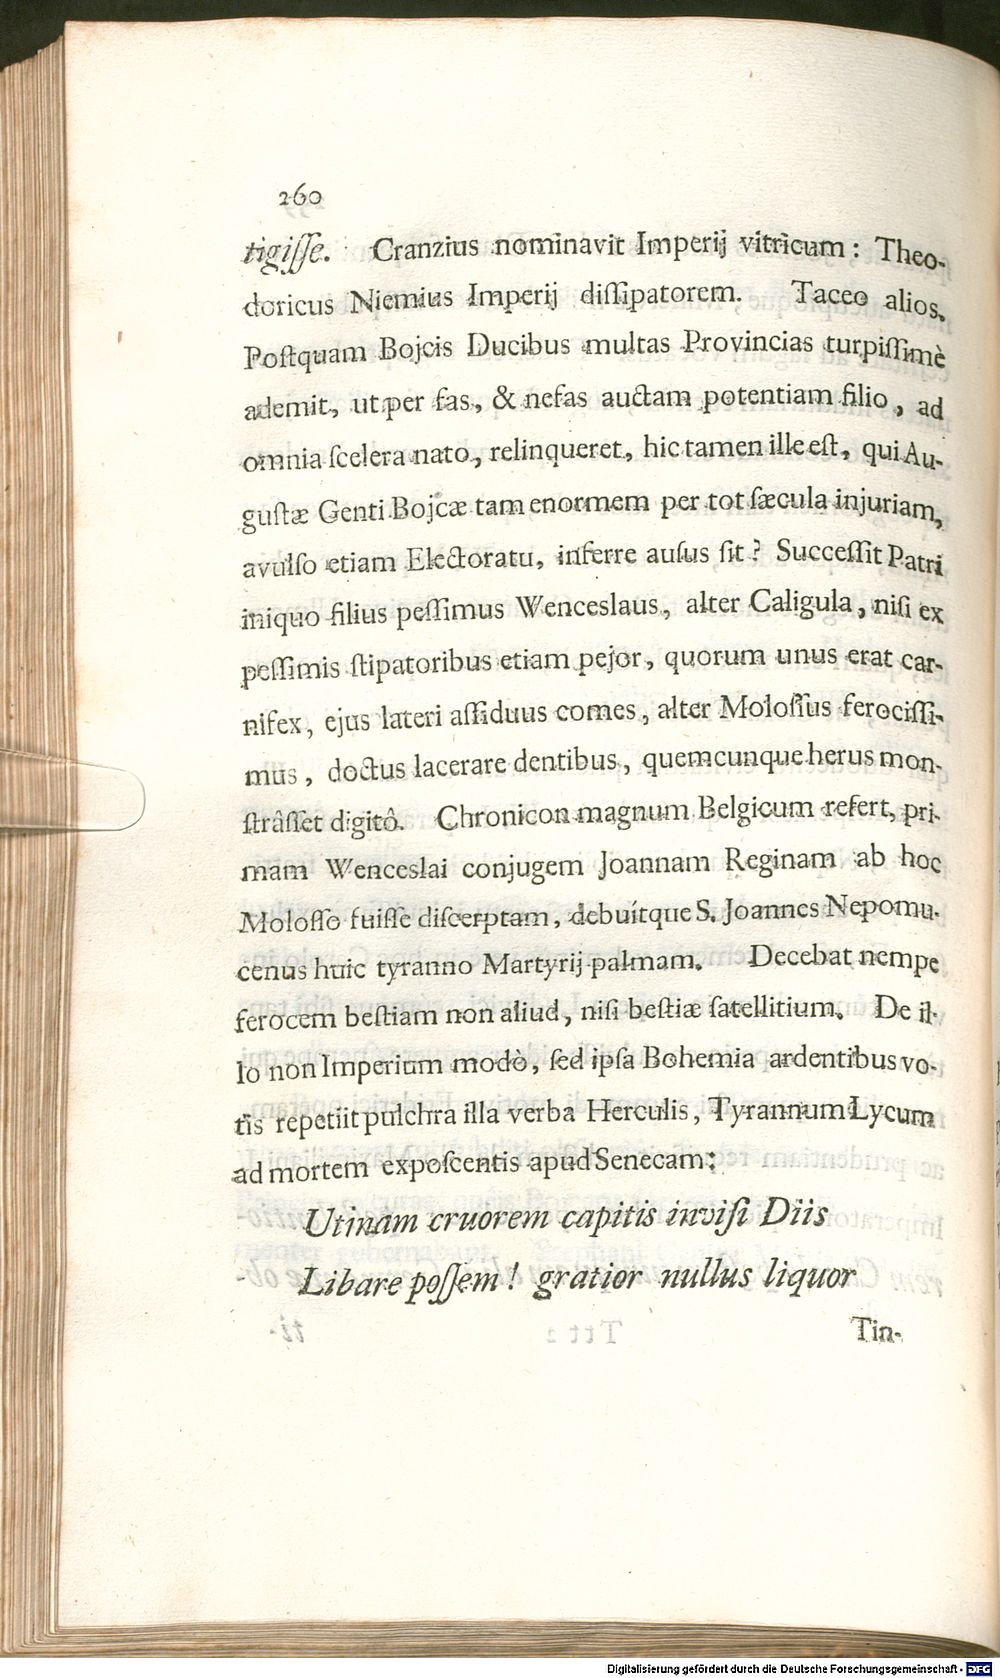 260
tigiſſe. Cranzius nominavit Imperij vitricum: Theo-
doricus Niemius Imperij diſſipatorem. Taceo alios.
Poſtquam Bojcis Ducibus multas Provincias turpiſſimè
ademit, ut per fas, & nefas auctam potentiam filio, ad
omnia ſcelera nato, relinqueret, hic tamen ille eſt, qui Au-
guſtæ Genti Bojcæ tam enormem per tot ſæcula injuriam,
avulſo etiam Electoratu, inferre auſus ſit? Succeſſit Patri
iniquo filius peſſimus Wenceslaus, alter Caligula, niſi ex
peſſimis ſtipatoribus etiam pejor, quorum unus erat car-
nifex, ejus lateri aſſiduus comes, alter Moloſſus ferociſſi-
mus, doctus lacerare dentibus, quemcunque herus mon-
ſtrâſſet digitô. Chronicon magnum Belgicum refert, pri-
mam Wenceslai conjugem Joannam Reginam ab hoc
Moloſſo fuiſſe diſcerptam, debuítque S. Joannes Nepomu-
cenus huic tyranno Martyrij palmam. Decebat nempe
ferocem beſtiam non aliud, niſi beſtiæ ſatellitium. De il-
lo non Imperium modò, ſed ipſa Bohemia ardentibus vo-
tis repetiit pulchra illa verba Herculis, Tyrannum Lycum
ad mortem expoſcentis apud Senecam:
Utinam cruorem capitis inviſi Diis
Libare poſſem! gratior nullus liquor
Tin-
Digitalisierung gefördert durch die Deutsche Forschungsgemeinschaft - DFG